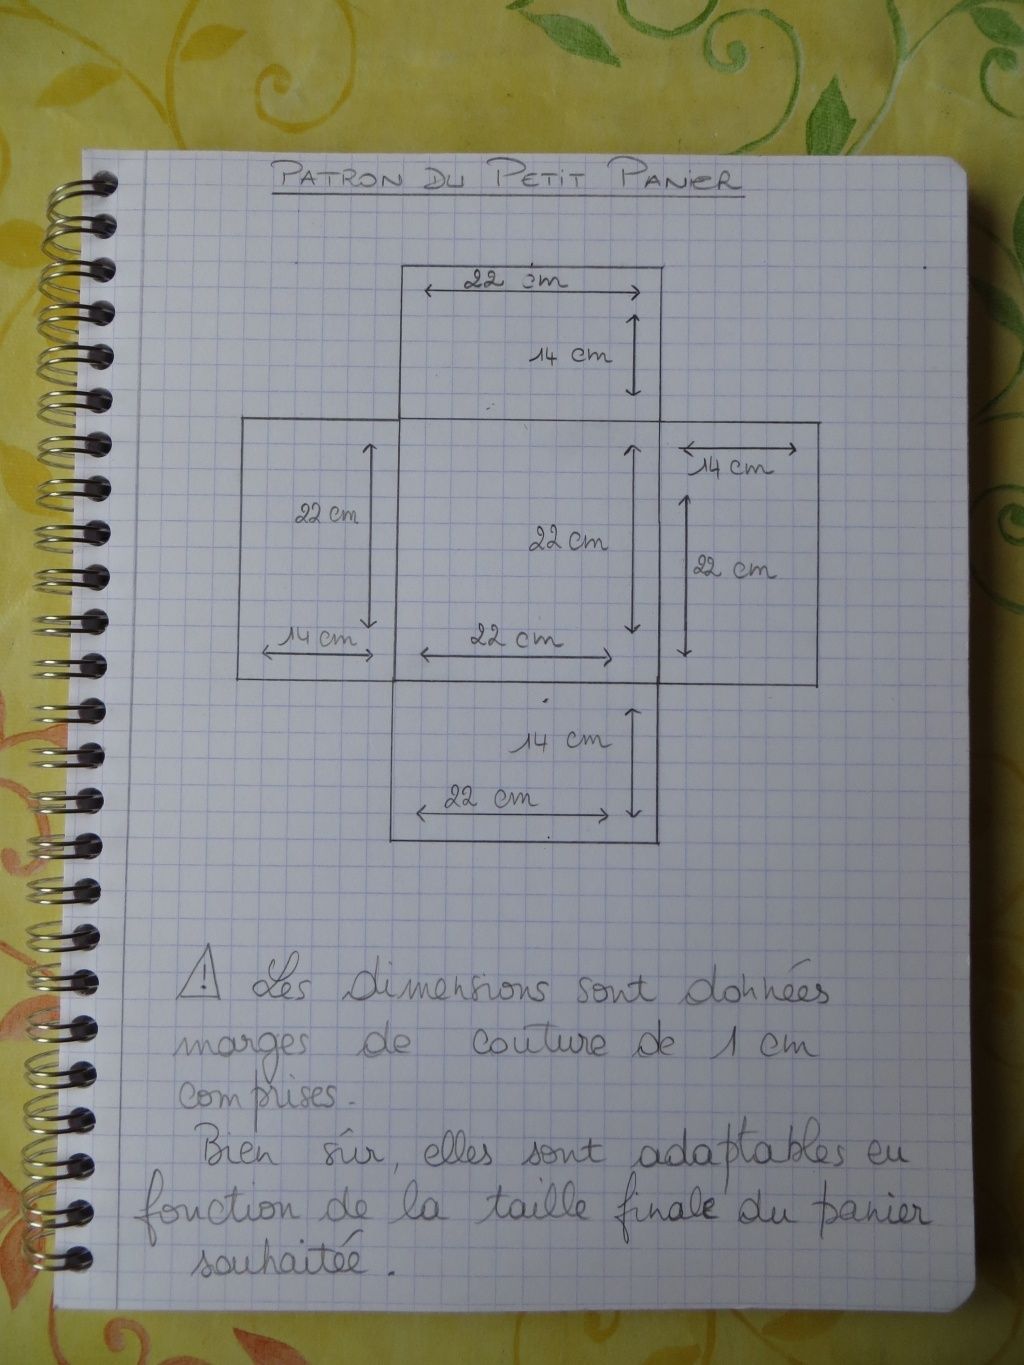 PATRON DU PETIT PANIER
22 cm
14 cm
14 cm
22 cm
22 cm
22 cm
14 cm
22 cm
14 cm
22 cm
⚠ Les dimensions sont données
marges de couture de 1 cm
comprises.
Bien sûr, elles sont adaptables en
fonction de la taille finale du panier
souhaitée.